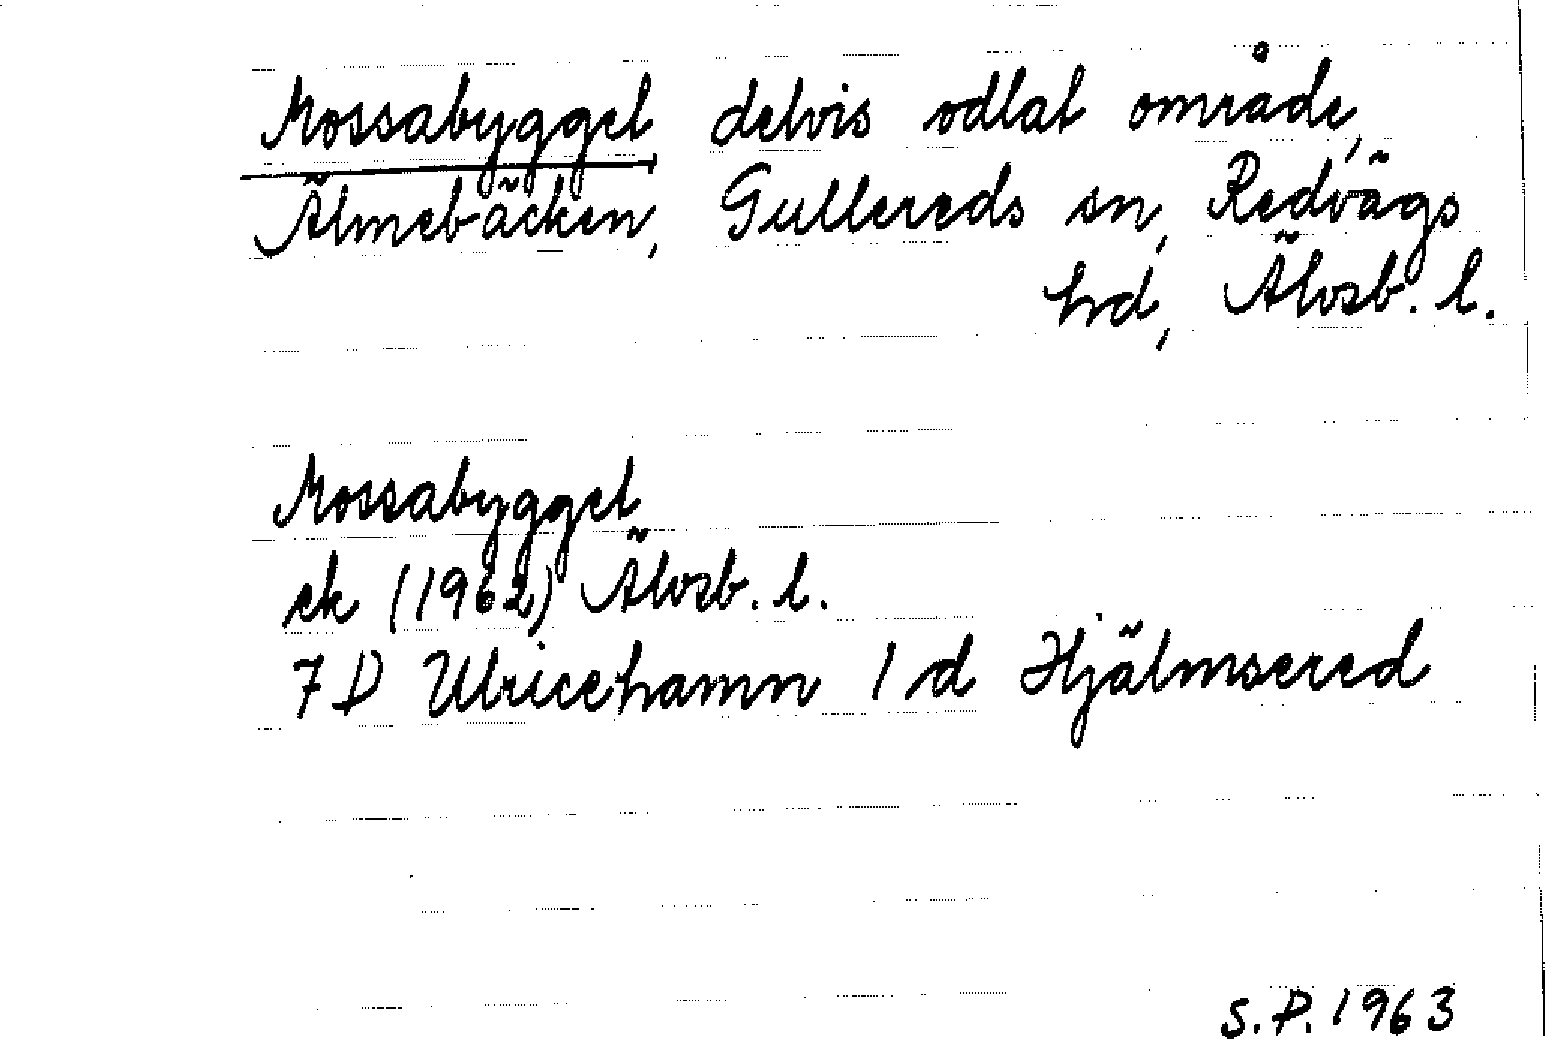 Mossabygget delvis odlat område,
Älmebäcken, Gullereds sn, Redvägs
hd, Älvsb. l.
Mossabygget
ek (1962) Älvsb. l.
7 D Ulricehamn 1 d Hjälmsered
S.P. 1963